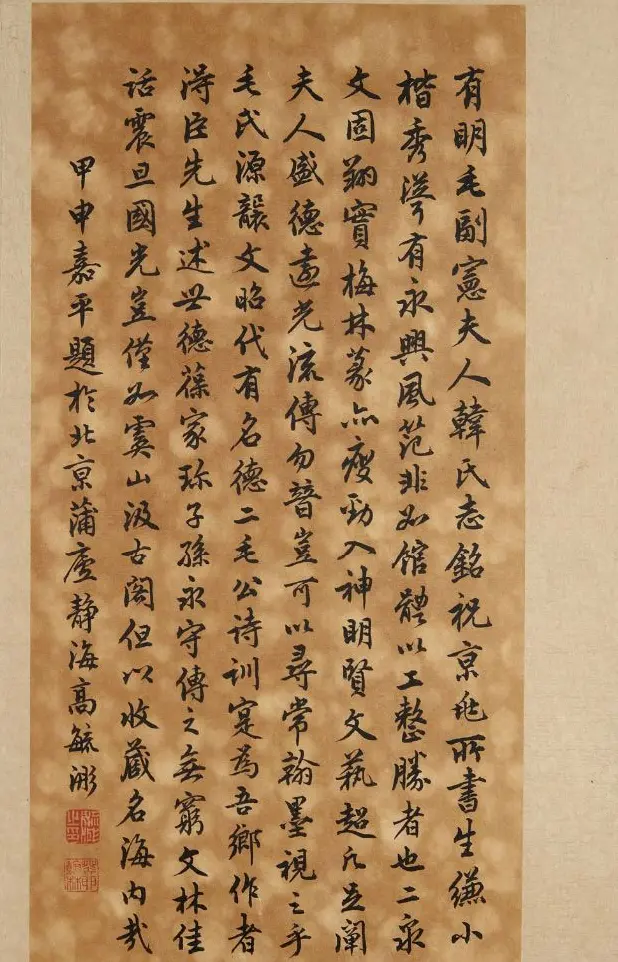 有明毛副憲夫人韓氏志銘祝京兆所書生縑小
楷秀澤有永興風范非如館體以工整勝者也二泉
文固翔實梅林篆亦瘦勁入神明賢文蓺超凡足闡
夫人盛德遠光流傳勿替豈可以尋常翰墨視之乎
毛氏源龔文昭代有名德二毛公詩訓寔為吾鄉作者
得臣先生述世德葆家珎子孫永守傳之無窮文林佳
話震旦國光豈僅如虞山汲古閣但以收藏名海內㢤
甲申嘉平題於北京蒲廬靜海高毓浵